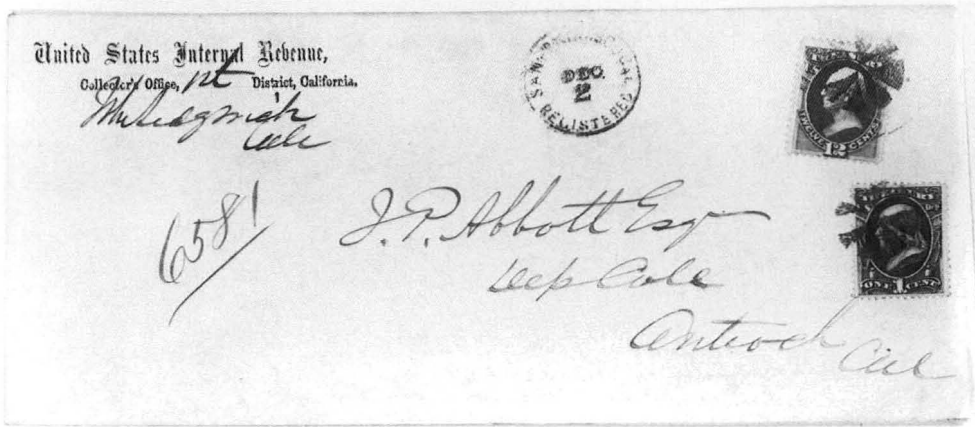 United States Internal Revenue,
Collector's Office, 1st District, California.
Wm Sedgwick
Colr
SAN FRANCISCO, CAL.
DEC
2
REGISTERED
TREASURY
TWELVE 12 CENTS
6581
J. P. Abbott Esqr
Dep Cole
TREASURY
ONE 1 CENT
Antioch
Cal